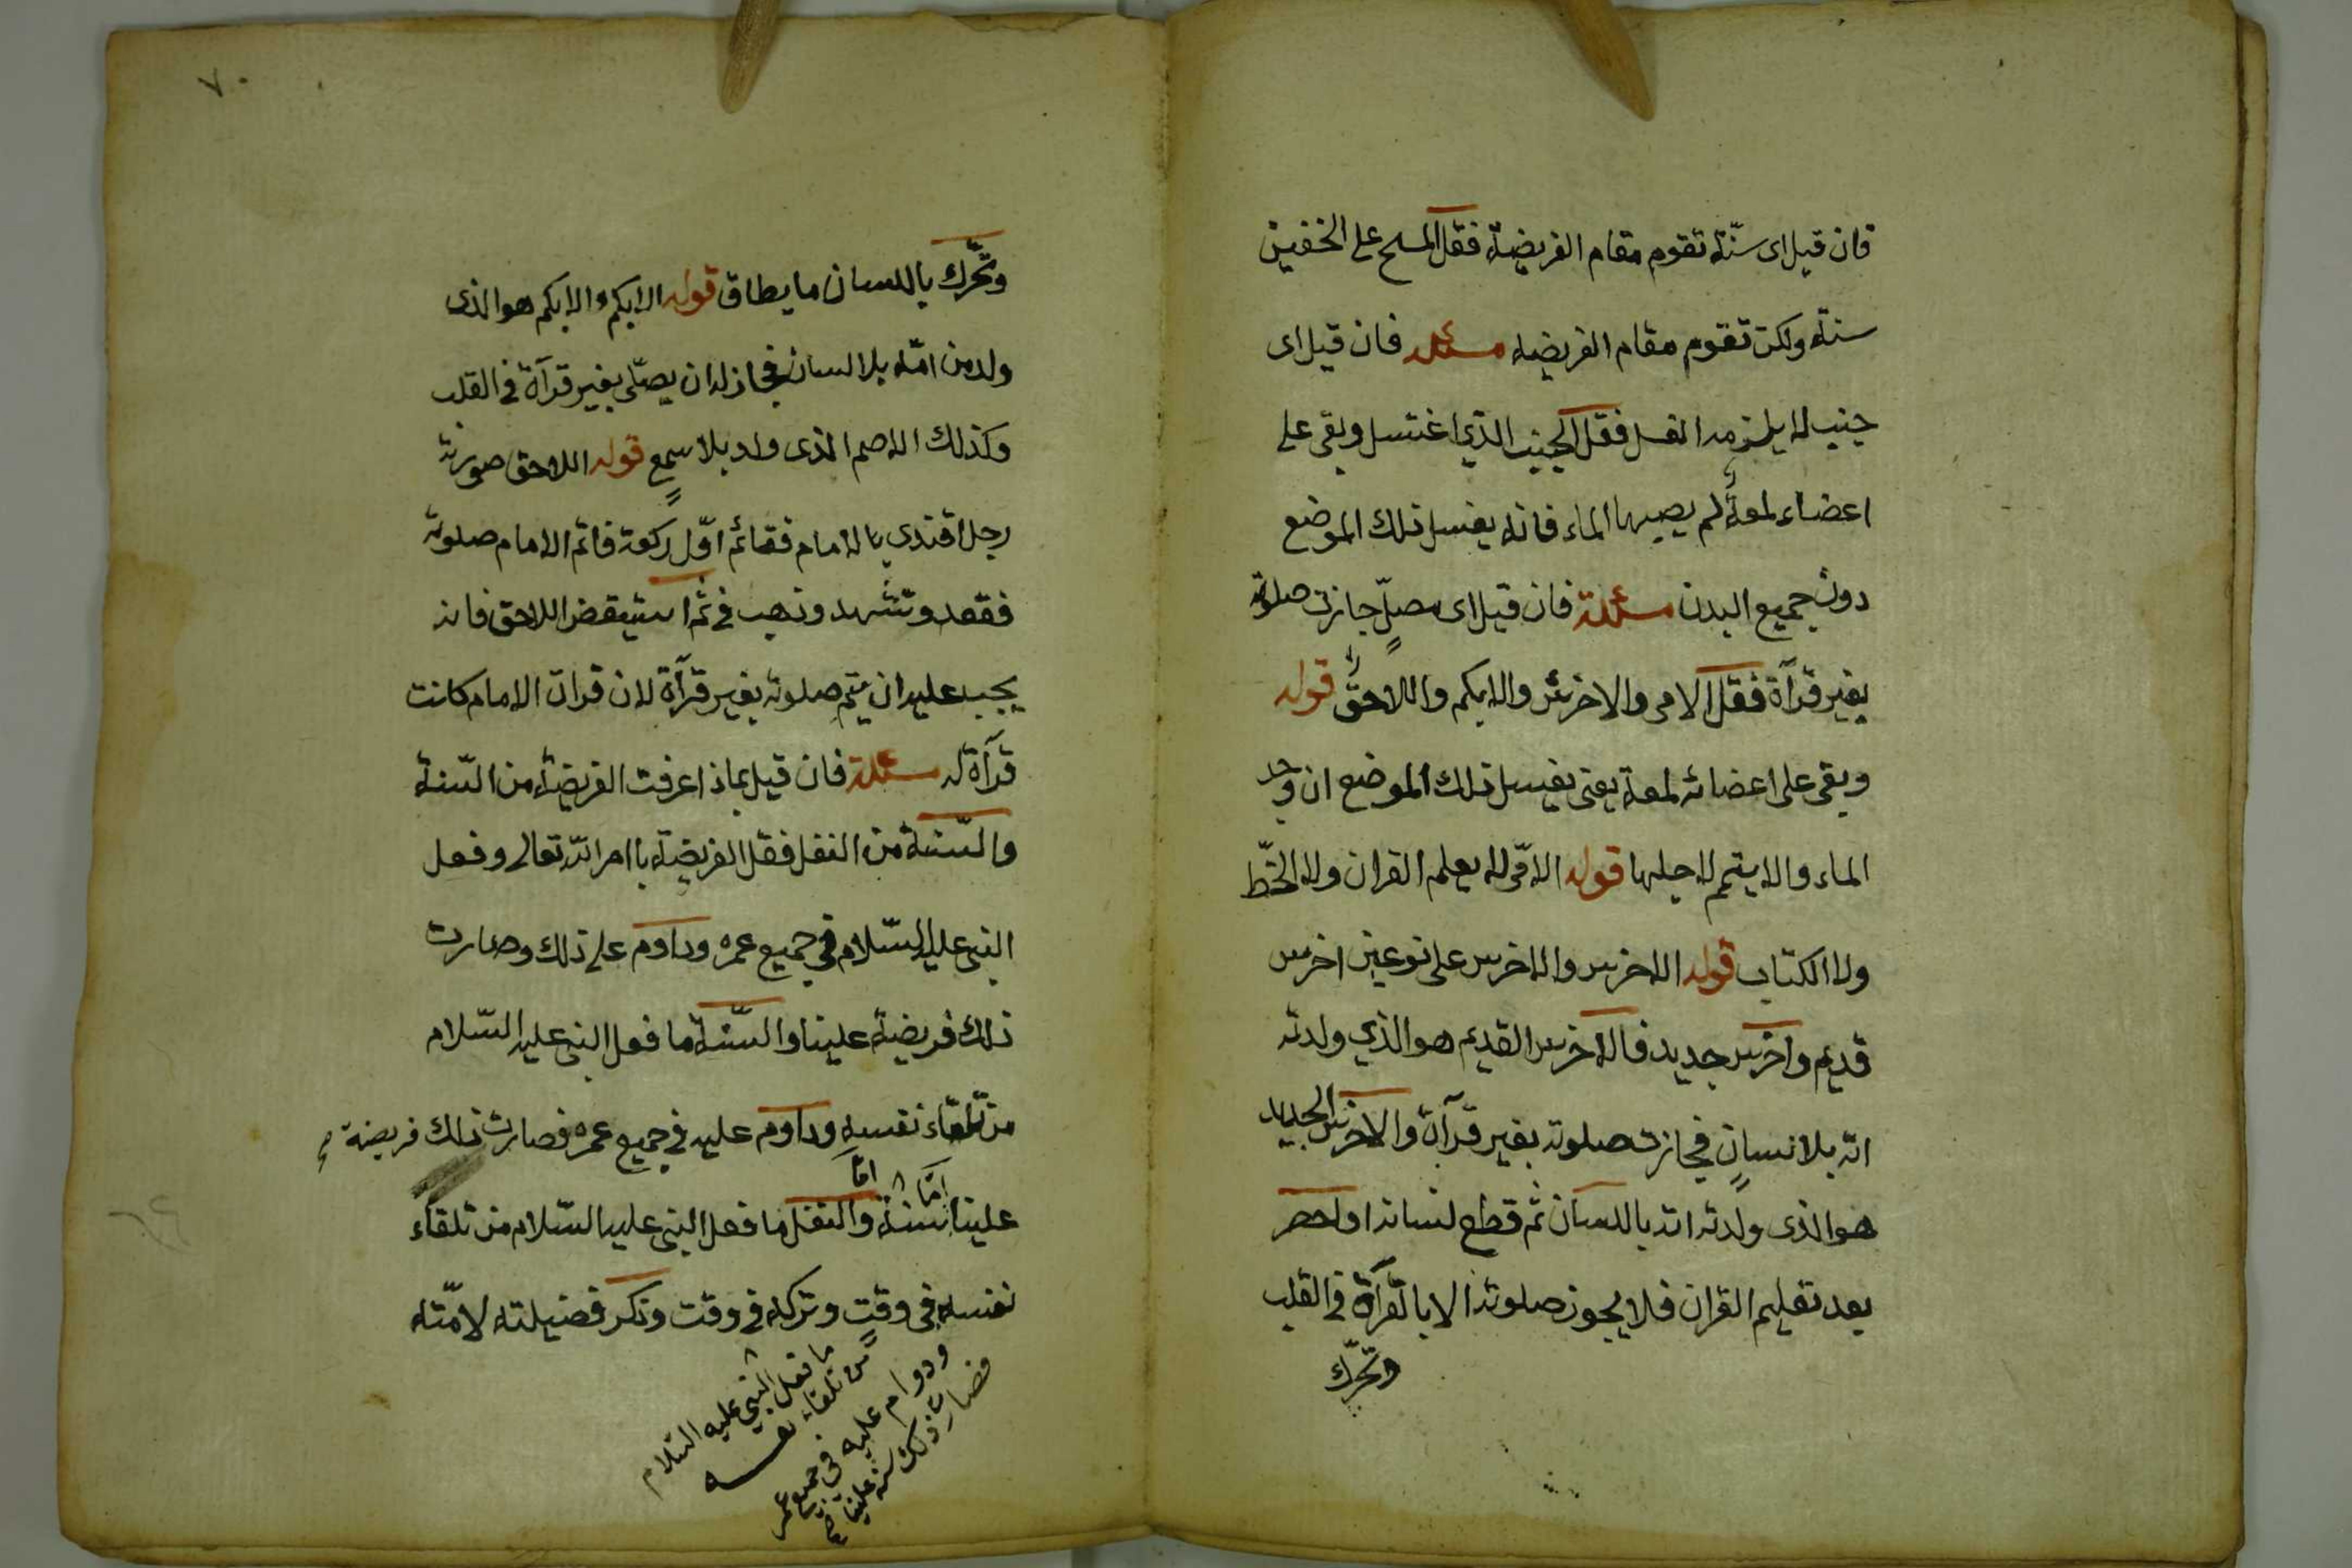 فان قيل اى سنّة تقوم مقام الفريضة فقل المسح على الخفين
سنة ولكن تقوم مقام الفريضة مسئلة فان قيل اى
جنب لا يلزمه الغسل فقل الجنب الذي اغتسل وبقى على
اعضاء لمعة لم يصيبها الماء فانه يغسل ذلك الموضع
دون جميع البدن مسئلة فان قيل اى مصلّ جازت صلوته
بغير قرآة فقل الامى والاخرس والابكم واللاحق قوله
وبقى على اعضائه لمعة يعنى يغسل ذلك الموضع ان وجد
الماء والا يتمم لاجلها قوله الامّى لا يعلم القران ولا الخّط
ولا الكتاب قوله الاخرس والاخرس على نوعين اخرس
قديم واخرس جديد فالاخرس القديم هو الذي ولدته
امّه بلا نسان فجازت صلوته بغير قرآة والاخرس الجديد
هو الذى ولدته امّه باللسان ثم قطع لسانه
بعد تعليم القران فلا يجوز صلوته الا بالقرآة فى القلب
وتحرّك
٧٠
وتحّرك باللسان ما يطاق قوله الابكم والابكم هو الذى
ولد من امّه بلا لسان فجاز له ان يصلّى بغير قرآة فى القلب
وكذلك الاصم الذى ولد بلا سمع قوله اللاحق صورته
رجل اقتدي بالامام فقائم اوّل ركعة فاتم الامام صلوته
فقعد وتشهد وذهب فى ثم استيقض اللاحق فانه
يجب عليه ان يتم صلوته بغير قرآة لان قران الامام كانت
قرآة له مسئلة فان قيل بماذا عرفت الفريضة من السّنة
والسّنة من النفل فقل الفريضة باامر الله تعالى وفعل
النبى عليه السّلام فى جميع عمره وداوم على ذلك وصارت
ذلك فريضة علينا والسّنة ما فعل النبى عليه السّلام
من تلقاء نفسه وداوم عليه فى جميع عمره فصارت ذلك فريضة
امّا امّا
علينا سنة والنفل ما فعل النبى عليه السّلام من تلقاء
نفسه فى وقت وتركه فى وقت وذكر فضيلته لامّته
ما فعل النّبي عليه السّلام
من تلقاء نفسه
ودوام عليه في جميع عمر
فصارت ذلك سنة علينا